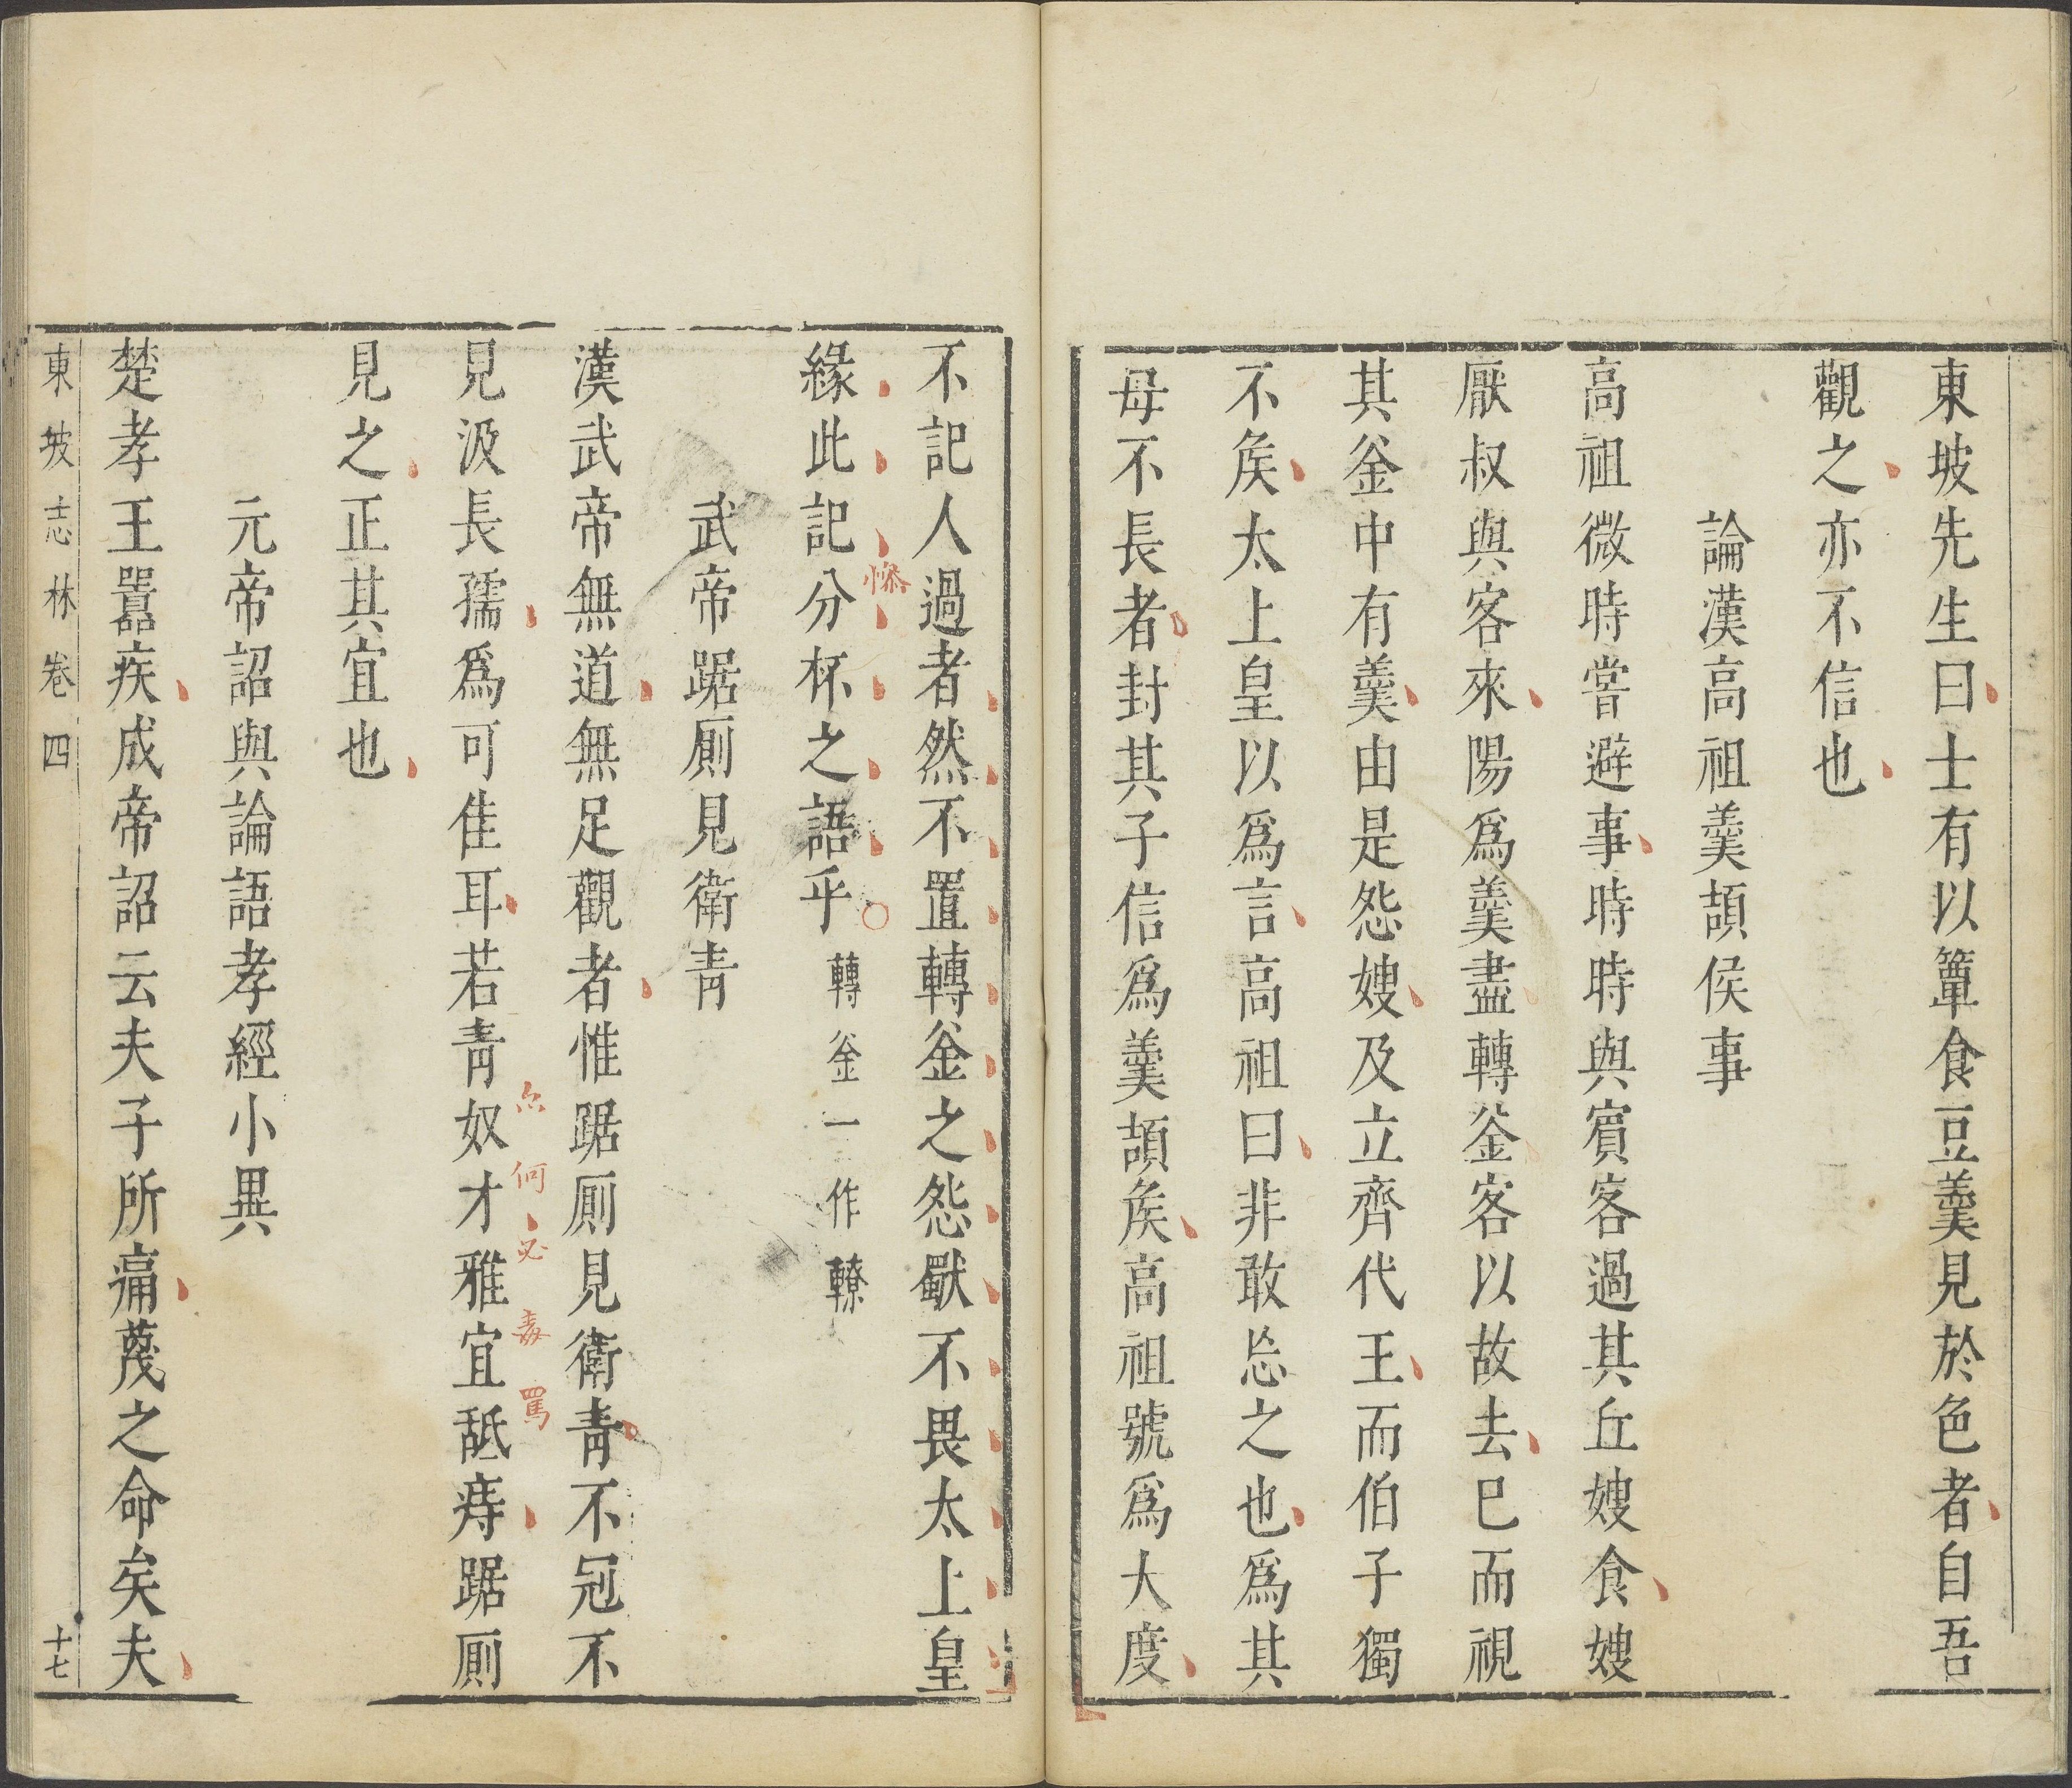 東坡先生曰士有以簞食豆羹見於色者自吾
觀之亦不信也
論漢高祖羹頡侯事
高祖微時嘗避事時時與賓客過其丘嫂食嫂
厭叔與客來陽爲羹盡轉釜客以故去已而視
其釜中有羹由是怨嫂及立齊代王而伯子獨
不矦太上皇以爲言高祖曰非敢忘之也爲其
母不長者封其子信爲羹頡矦高祖號爲大度
不記人過者然不置轉釜之怨獸不畏太上皇
緣此記分杯之語乎 轉釜一作轑
慘
武帝踞厠見衛青
漢武帝無道無足觀者惟踞厠見衛青不冠不
見汲長孺爲可佳耳若青奴才雅宜舐痔踞厠
何必毒罵
見之正其宜也
元帝詔與論語孝經小異
楚孝王囂疾成帝詔云夫子所痛蔑之命矣夫
東坡志林卷四 十七